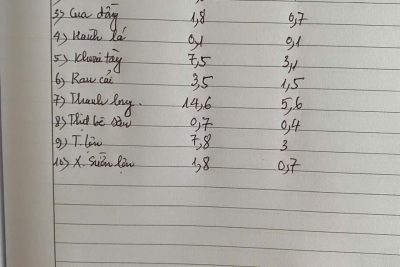 3) Cua đồng 1,8 0,7
4) Hành lá 0,1 0,1
5) Khoai tây 7,5 3,1
6) Rau cải 3,5 1,5
7) Thanh long. 14,6 5,6
8) Thịt bê 0,7 0,4
9) T. lợn 7,8 3
10) X. Sườn lợn 1,8 0,7